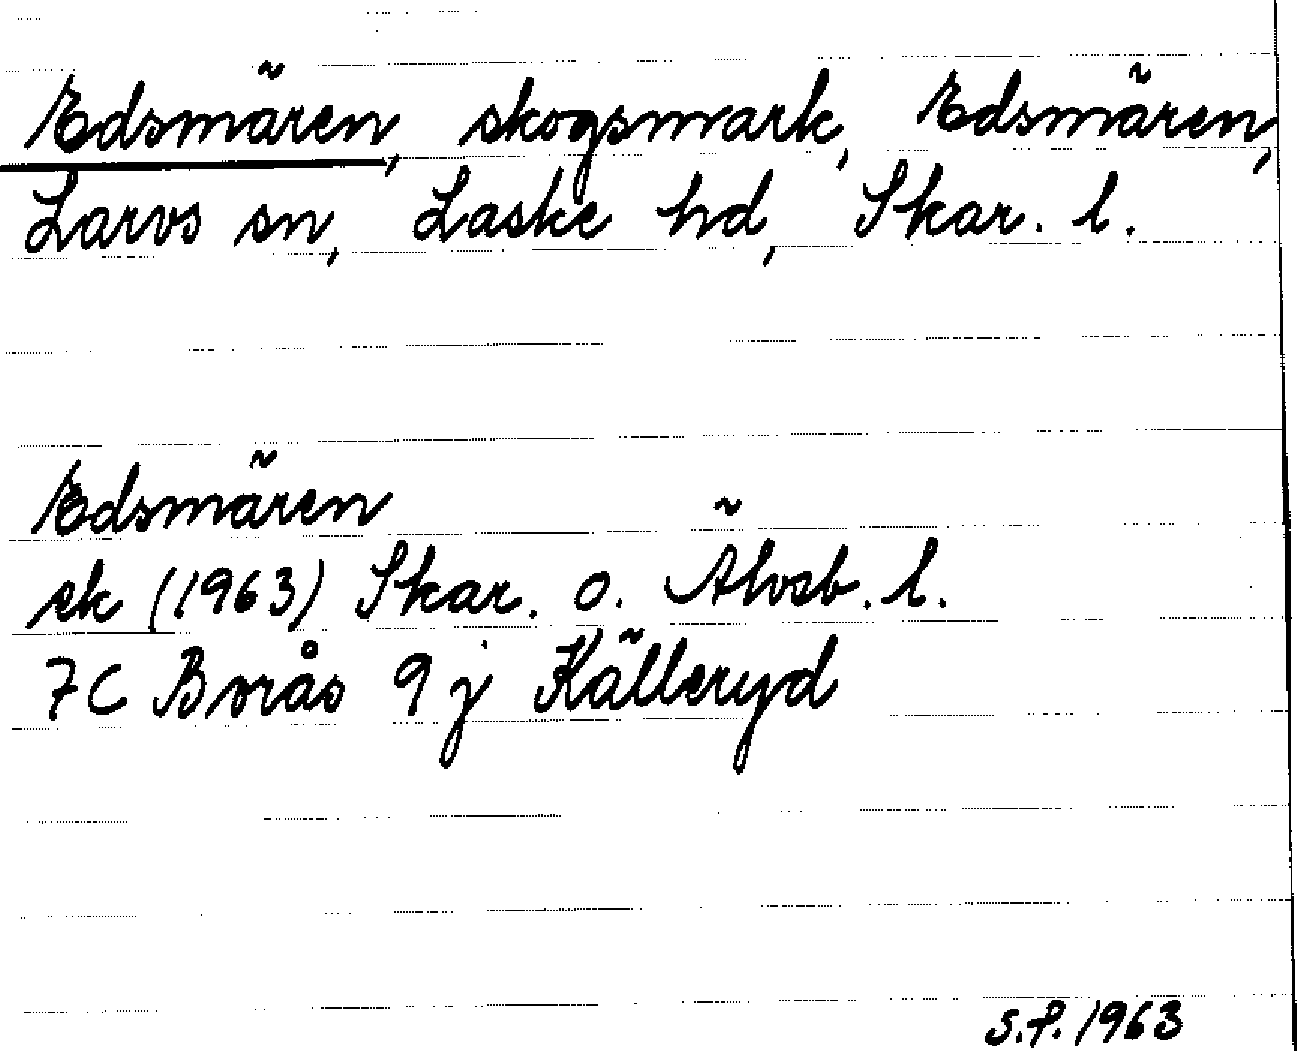 Edsmären, skogsmark, Edsmären,
Larvs sn, Laske hd, Skar. l.
Edsmären
ek (1963) Skar. o. Älvsb. l.
7C Borås 9j Källeryd
S.P. 1963